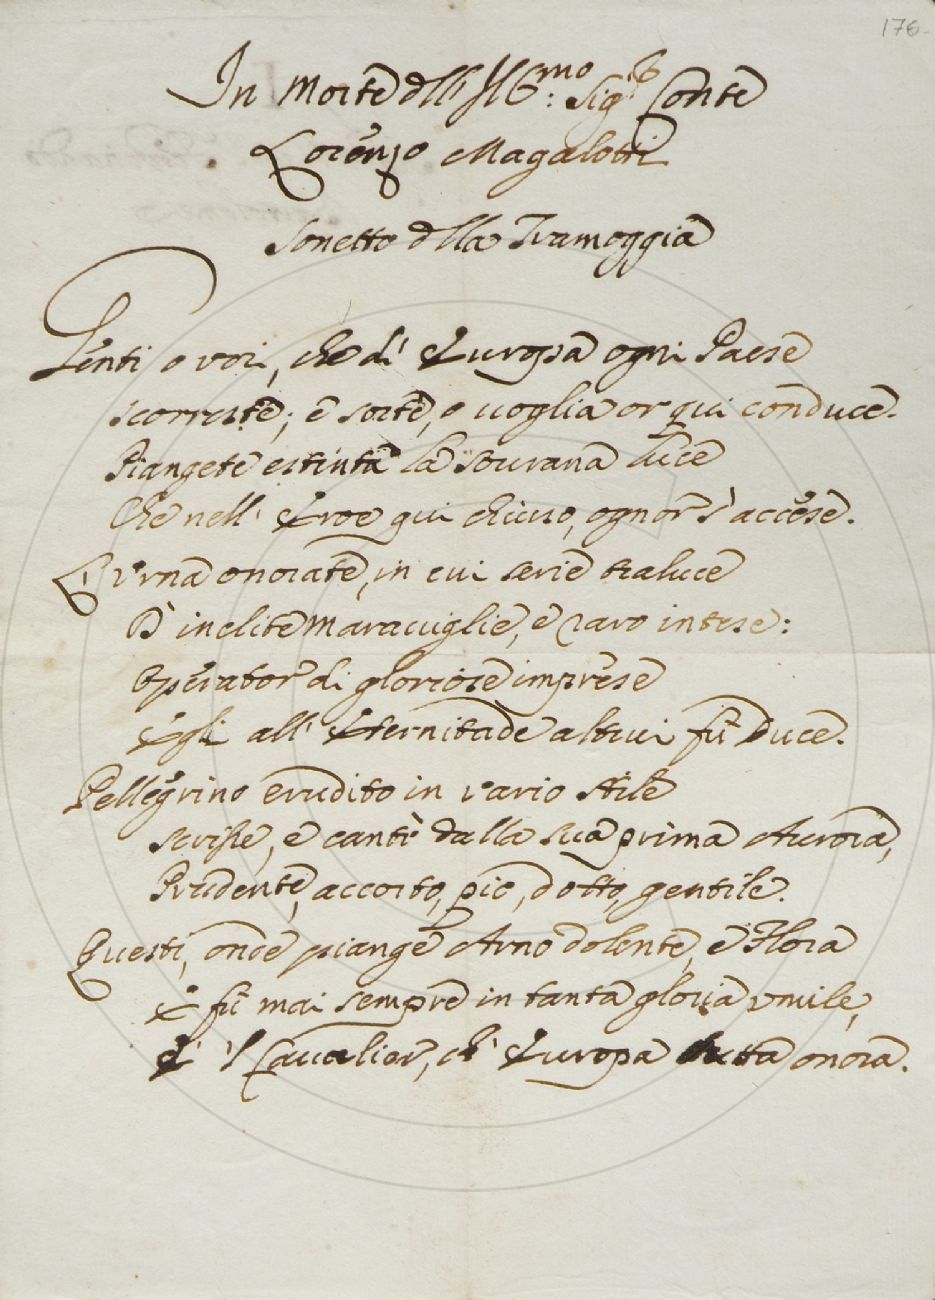 176.
In Morte dell' Ill:mo Sig.r Conte
Lorenzo Magalotti
Sonetto della Tramoggia
Genti o voi, che di Europa ogni Paese
scorreste; e sorte, o uoglia or qui conduce.
Piangete estinta la sourana luce
Che nell' Eroe qui chiuso, ognor s' accese.
L' Vrna onorate, in cui serie traluce
D' inclite Marauiglie, e raro intese:
Operator di gloriose imprese
Egli all' Eternitade altrui fù Duce.
Pellegrino erudito in vario stile
scrisse, e cantò dalla sua prima Aurora,
Prudente, accorto, pio, dotto, gentile.
Questi, onde piange Arno dolente, e Flora
E fù mai sempre in tanta gloria vmile,
E' 'l Caualier, ch' Europa tutta onora.